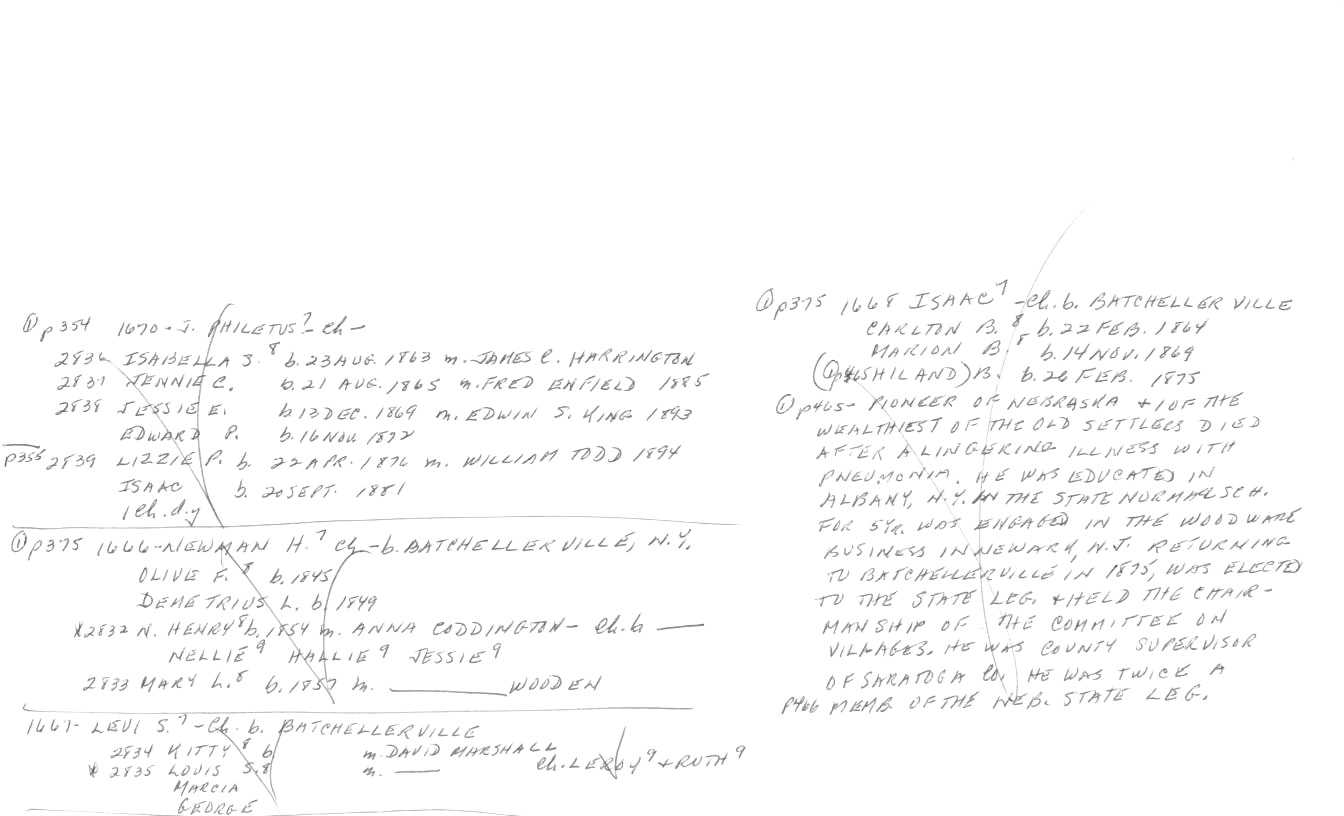 ① p354 1670 - J. PHILETUS⁷ - Ch -
2836 ISABELLA S.⁸ b. 23 AUG. 1863 m. JAMES C. HARRINGTON
2837 JENNIE C. b. 21 AUG. 1865 m. FRED ENFIELD 1885
2838 JESSIE E. b. 13 DEC. 1869 m. EDWIN S. KING 1893
EDWARD P. b. 16 NOV. 1872
p355 2839 LIZZIE P. b. 22 APR. 1876 m. WILLIAM TODD 1894
ISAAC b. 20 SEPT. 1881
1 Ch. d. y
① p375 1666 - NEWMAN H.⁷ Ch - b. BATCHELLERVILLE, N.Y.
OLIVE F.⁸ b. 1845
DEMETRIUS L. b. 1849
*2832 N. HENRY⁸ b. 1854 m. ANNA CODDINGTON - Ch. b ——
NELLIE⁹ HALLIE⁹ JESSIE⁹
2833 MARY L.⁸ b. 1857 m. ______ WOODEN
1667 - LEVI S.⁷ - Ch. b. BATCHELLERVILLE
2834 KITTY⁸ b m. DAVID MARSHALL
* 2835 LOUIS S.⁸ m. —— Ch. LEROY⁹ + RUTH⁹
MARCIA
GEORGE
① p375 1668 ISAAC⁷ - Ch. b. BATCHELLERVILLE
CARLTON B.⁸ b. 22 FEB. 1864
MARION B.⁸ b. 14 NOV. 1869
(① p465 HILAND) B. b. 26 FEB. 1875
① p465 - PIONEER OF NEBRASKA + 1 OF THE
WEALTHIEST OF THE OLD SETTLERS DIED
AFTER A LINGERING ILLNESS WITH
PNEUMONIA. HE WAS EDUCATED IN
ALBANY, N.Y. IN THE STATE NORMAL SCH.
FOR 5 YR. WAS ENGAGED IN THE WOODWARE
BUSINESS IN NEWARK, N.J. RETURNING
TO BATCHELLERVILLE IN 1875, WAS ELECTED
TO THE STATE LEG. + HELD THE CHAIR-
MANSHIP OF THE COMMITTEE ON
VILLAGES. HE WAS COUNTY SUPERVISOR
OF SARATOGA CO. HE WAS TWICE A
P466 MEMB OF THE NEB. STATE LEG.